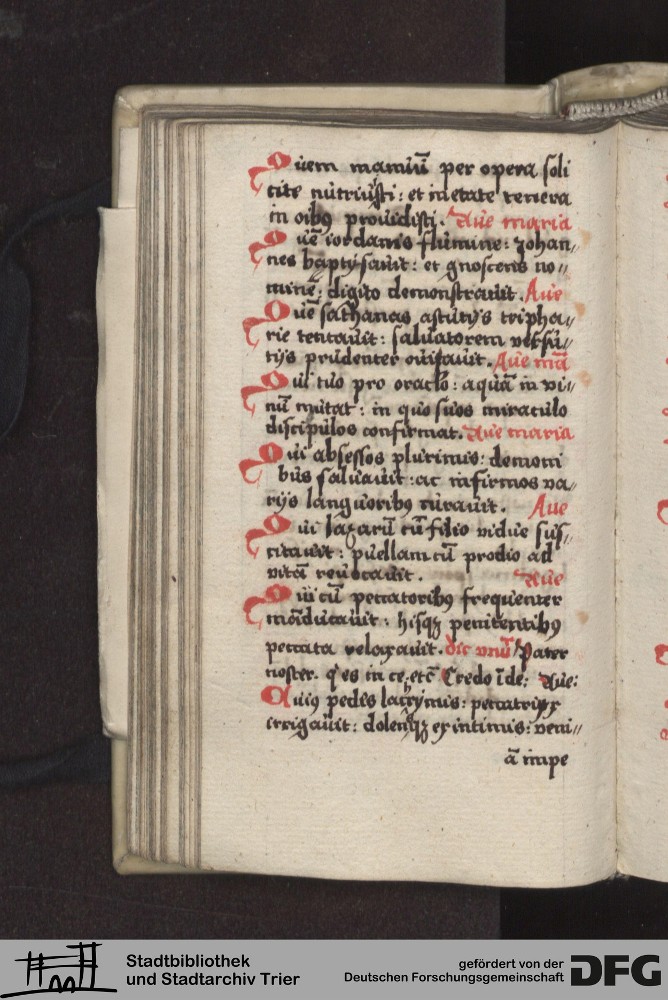 Quem manuū per opera soli
cite nutriuisti : et in etate tenera
in oībꝰ prouidisti. Aue maria
Quē iordanis flumine: Johan〃
nes baptysauit: et gnoscens no〃
minē: digito demonstrauit. Aue
Quē sathanas astutijs tripha〃
rie tentauit: saluatorem versu〃
tijs prudenter euitauit. Aue mā
Qui tuo pro oraclo: aquā in vi〃
nū mutat: in quo suos miraculo
discipulos confirmat. Aue maria
Qui absessos plurimis: demoni
bus saluauit: ac infirmos va〃
rijs languoribꝰ curauit. Aue
Qui lazarū cū filio vidue sus〃
citauit: puellam cū prodio ad
vitā reuocauit. Aue
Qui cū peccatoribꝰ frequenter
māducauit: hisqꝫ penitentibꝰ
peccata relaxauit. dic vnū Pater
noster. q̇ es in ce. etc̄ Credo īde: Aue:
Quius pedes lacrymis: peccatrix
irrigauit: dolensqꝫ ex intimis: veni〃
ā impe
Stadtbibliothek
und Stadtarchiv Trier
gefördert von der
Deutschen Forschungsgemeinschaft
DFG